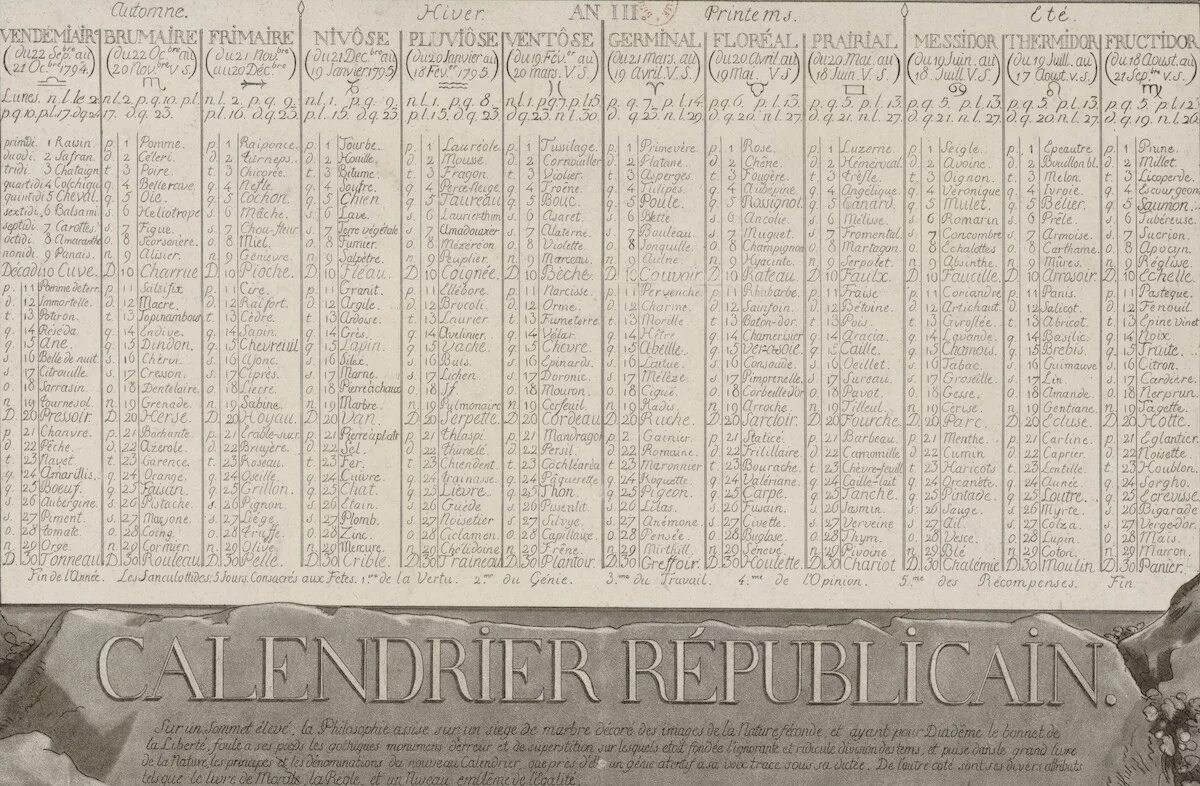 Automne. Hiver. AN III. Printems. Eté.
VENDÉMIAIRE BRUMAIRE FRIMAIRE NIVÔSE PLUVIÔSE VENTÔSE GERMINAL FLORÉAL PRAIRIAL MESSIDOR THERMIDOR FRUCTIDOR
(du 22 Sep.bre au (du 22 Oc.bre au (du 21 Nov.bre (du 21 Dec.bre au (du 20 Janvier au (du 19 Fév.er au (du 21 mars. au (du 20 Avril au (du 20 Mai. au (du 19 Juin. au (du 19 Juill. au (du 18 Aoust. au
21 Oc.bre 1794.) 20 Nov.bre V S.) au 20 Déc.bre) 19 Janvier 1795) 18 Fév.er 1795.) 20 mars. V.S.) 19 Avril. V.S.) 19 Mai. V.S.) 18 Juin. V.S.) 18 Juill. V.S.) 17 Aoust. V.S.) 21 Sep.bre V.S.)
Lunes. n.l. le 2. n.l. 2. p.q. 10. p.l. n.l. 2. p.q. 9. n.l. 1. p.q. 9. n.l. 1. p.q. 8. n.l. 1. p.q. 7. p.l. 15. p.q. 7. p.l. 14. p.q. 6. p.l. 13. p.q. 5. p.l. 13. p.q. 5. p.l. 13. p.q. 5. p.l. 13. p.q. 5. p.l. 12.
p.q. 10. p.l. 17. d.q. 24. 17. d.q. 23. p.l. 16. d.q. 23 p.l. 15. d.q. 23 p.l. 15. d.q. 23. d.q. 23. n.l. 30. d.q. 23. n.l. 29. d.q. 21. n.l. 28. d.q. 21. n.l. 27. d.q. 21. n.l. 27. d.q. 20. n.l. 27. d.q. 19. n.l. 26.
primdi. 1 Raisin p. 1 Pomme. p. 1 Raiponce. p. 1 Tourbe. p. 1 Lauréole. p. 1 Tussilage. p. 1 Primevère p. 1 Rose. p. 1 Luzerne. p. 1 Seigle. p. 1 Epeautre p. 1 Prune.
duodi. 2 Safran. d. 2 Céleri. d. 2 Turneps. d. 2 Houille d. 2 Mousse d. 2 Cornouiller d. 2 Platane. d. 2 Chêne. d. 2 Hémerocal. d. 2 Avoine. d. 2 Bouillon bl. d. 2 Millet.
tridi. 3 Chataign t. 3 Poire. t. 3 Chicorée. t. 3 Bitume t. 3 Fragon. t. 3 Violier t. 3 Asperges t. 3 Fougère. t. 3 Trèfle. t. 3 Oignon. t. 3 Melon. t. 3 Licoperde.
quartidi 4 Colchiqu q. 4 Betterave. q. 4 Nefle. q. 4 Soufre. q. 4 Perce-Neige. q. 4 Troëne. q. 4 Tulipes. q. 4 Aubepine. q. 4 Angélique. q. 4 Véronique q. 4 Ivroie. q. 4 Escourgeon
quintidi 5 Cheval. q. 5 Oie. q. 5 Cochon. q. 5 Chien q. 5 Taureau q. 5 Bouc. q. 5 Poule q. 5 Rossignol. q. 5 Canard. q. 5 Mulet q. 5 Bélier. q. 5 Saumon.
sextidi. 6 Balsami s. 6 Heliotrope s. 6 Mâche. s. 6 Lave. s. 6 Laurier-thim s. 6 Asaret s. 6 Bette s. 6 Ancolie. s. 6 Mélisse. s. 6 Romarin s. 6 Prêle. s. 6 Tubéreuse.
septidi. 7 Carottes. s. 7 Figue. s. 7 Chou-fleur s. 7 Terre végétale s. 7 Amadouvier s. 7 Alaterne. s. 7 Bouleau s. 7 Muguet. s. 7 Fromental. s. 7 Concombre s. 7 Armoise. s. 7 Sucrion.
octidi. 8 Amaranthe o. 8 Scorsonère. o. 8 Miel. o. 8 Fumier. o. 8 Mézéréon o. 8 Violette o. 8 Jonquille o. 8 Champignon o. 8 Martagon. o. 8 Echalottes o. 8 Carthame. o. 8 Apocyn
nonidi. 9 Panais. n. 9 Alisier. n. 9 Genièvre. n. 9 Salpètre. n. 9 Peuplier n. 9 Marceau. n. 9 Aulne. n. 9 Hyacinte n. 9 Serpolet. n. 9 Absinthe n. 9 Mûres. n. 9 Réglisse
Décadi 10 Cuve. D 10 Charrue D 10 Pioche. D. 10 Fléau. D. 10 Coignée. D. 10 Bêche. D. 10 Couvoir D. 10 Rateau D. 10 Faulx D. 10 Faucille D. 10 Arrosoir D. 10 Echelle
p. 11 Pomme de terr. p. 11 Salsifix p. 11 Cire. p. 11 Granit. p. 11 Ellébore p. 11 Narcisse. p. 11 Pervenche p. 11 Rhubarbe. p. 11 Fraise p. 11 Coriandre p. 11 Panis. p. 11 Pasteque.
d. 12 Immortelle. d. 12 Macre. d. 12 Raifort. d. 12 Argile d. 12 Brocoli. d. 12 Orme. d. 12 Charme. d. 12 Sainfoin. d. 12 Bétoine. d. 12 Artichaut d. 12 Salicot. d. 12 Fenouil
t. 13 Potiron. t. 13 Topinambour t. 13 Cèdre. t. 13 Ardoise. t. 13 Laurier t. 13 Fumeterre t. 13 Morille t. 13 Baton-dor. t. 13 Pois. t. 13 Giroflée. t. 13 Abricot. t. 13 Epine Vinet
q. 14 Réséda. q. 14 Endive. q. 14 Sapin. q. 14 Grès. q. 14 Avelinier. q. 14 Vélar q. 14 Hêtre q. 14 Chamerisier q. 14 Acacia. q. 14 Lavande. q. 14 Basilic. q. 14 Noix
q. 15 Ane. q. 15 Dindon. q. 15 Chevreuil q. 15 Lapin. q. 15 Vache q. 15 Chevre. q. 15 Abeille. q. 15 Ver-à-Soie q. 15 Caille. q. 15 Chamois. q. 15 Brebis q. 15 Truite.
s. 16 Belle de nuit s. 16 Chervi. s. 16 Ajonc. s. 16 Silex. s. 16 Buis. s. 16 Epinards. s. 16 Laitue s. 16 Consoude. s. 16 Oeillet. s. 16 Tabac. s. 16 Guimauve s. 16 Citron.
s. 17 Citrouille. s. 17 Cresson. s. 17 Ciprès. s. 17 Marne. s. 17 Lichen s. 17 Doronic. s. 17 Mélèze. s. 17 Pimprenelle. s. 17 Sureau. s. 17 Groseille s. 17 Lin s. 17 Cardière.
o. 18 Sarrasin o. 18 Dentelaire. o. 18 Lierre. o. 18 Pierre à chaux o. 18 If. o. 18 Mouron. o. 18 Ciguë. o. 18 Corbeille d'Or o. 18 Pavot. o. 18 Gesse. o. 18 Amande o. 18 Nerprun.
n. 19 Tournesol n. 19 Grenade. n. 19 Sabine. n. 19 Marbre. n. 19 Pulmonaire n. 19 Cerfeuil. n. 19 Radis n. 19 Arroche n. 19 Tilleul. n. 19 Cerise. n. 19 Gentiane. n. 19 Sagette.
D. 20 Pressoir. D. 20 Herse. D. 20 Hoyau. D. 20 Van. D. 20 Serpette. D. 20 Cordeau D. 20 Ruche D. 20 Sarcloir. D. 20 Fourche. D. 20 Parc. D. 20 Ecluse. D. 20 Hotte.
p. 21 Chanvre. p. 21 Bachante. p. 21 Erable-sucr p. 21 Pierre à platr p. 21 Thlaspi. p. 21 Mandragor p. 21 Gainier. p. 21 Staticé p. 21 Barbeau. p. 21 Menthe. p. 21 Carline. p. 21 Eglantier
d. 22 Pêche. d. 22 Azerole. d. 22 Bruyère. d. 22 Sel. d. 22 Thimelé d. 22 Persil. d. 22 Romaine. d. 22 Fritillaire. d. 22 Camomille d. 22 Cumin d. 22 Caprier. d. 22 Noisette
t. 23 Navet t. 23 Garence. t. 23 Roseau. t. 23 Fer. t. 23 Chiendent. t. 23 Cochléaria t. 23 Maronnier t. 23 Bourache. t. 23 Chèvre-feuill t. 23 Haricots t. 23 Lentille. t. 23 Houblon.
q. 24 Amarillis. q. 24 Orange. q. 24 Oseille q. 24 Cuivre. q. 24 Trainasse. q. 24 Pâquerette q. 24 Roquette q. 24 Valériane. q. 24 Caille-lait q. 24 Orcanète q. 24 Aunée. q. 24 Sorgho.
q. 25 Boeuf. q. 25 Faisan. q. 25 Grillon. q. 25 Chat. q. 25 Lièvre. q. 25 Thon. q. 25 Pigeon. q. 25 Carpe. q. 25 Tanche. q. 25 Pintade. q. 25 Loutre. q. 25 Ecrevisse
s. 26 Aubergine. s. 26 Pistache. s. 26 Pignon. s. 26 Etain. s. 26 Guède s. 26 Pissenlit. s. 26 Lilas. s. 26 Fusain. s. 26 Jasmin. s. 26 Sauge. s. 26 Myrte. s. 26 Bigarade
s. 27 Piment. s. 27 Macjone. s. 27 Liège. s. 27 Plomb. s. 27 Noisetier s. 27 Silvye. s. 27 Anémone. s. 27 Civette s. 27 Verveine s. 27 Ail. s. 27 Colza. s. 27 Verge-dor.
o. 28 Tomate. o. 28 Coing o. 28 Truffe. o. 28 Zinc. o. 28 Ciclamen. o. 28 Capillaux. o. 28 Pensée. o. 28 Buglose. o. 28 Thym. o. 28 Vesce. o. 28 Lupin o. 28 Mais.
n. 29 Orge n. 29 Cormier n. 29 Olive n. 29 Mercure. n. 29 Chélidoine n. 29 Frêne. n. 29 Mirthill. n. 29 Sénevé. n. 29 Pivoine n. 29 Blé n. 29 Coton. n. 29 Marron.
D. 30 Tonneau D. 30 Rouleau D. 30 Pelle. D. 30 Crible. D. 30 Traineau D. 30 Plantoir. D. 30 Greffoir D. 30 Houlette D. 30 Chariot D. 30 Chalémie D. 30 Moulin D. 30 Panier.
Fin de l'Année. Les Sanculottides 5 Jours. Consacrés aux Fêtes. 1.ere de la Vertu. 2.me du Génie. 3.me du Travail. 4.me de l'Opinion. 5.me des Récompenses. Fin
CALENDRIER RÉPUBLICAIN.
Sur un Sommet élevé, la Philosophie assise sur un siege de marbre décoré des images de la Nature féconde et ayant pour Diadême le bonnet de
la Liberté, foule à ses pieds les gothiques monumens d'erreur et de superstition, sur lesquels étoit fondée l'ignorante et ridicule division des tems, et puise dans le grand livre
de la Nature, les principes et les dénominations du nouveau Calendrier, que près d'elle un génie atentif a sa voix trace sous sa dictée. De l'autre coté sont ses divers attributs
tels que le livre de Morale, la Regle, et un Niveau emblème de l'égalité.